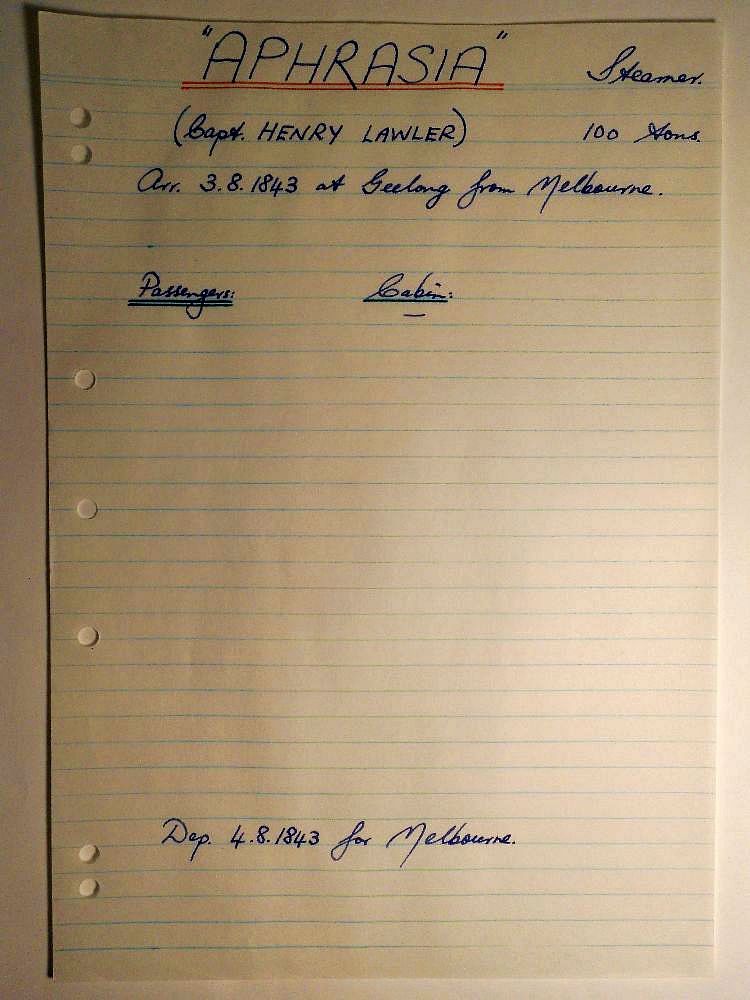 "APHRASIA" Steamer.
(Capt. HENRY LAWLER) 100 tons.
Arr. 3.8.1843 at Geelong from Melbourne.
Passengers: Cabin:
—
Dep. 4.8.1843 for Melbourne.